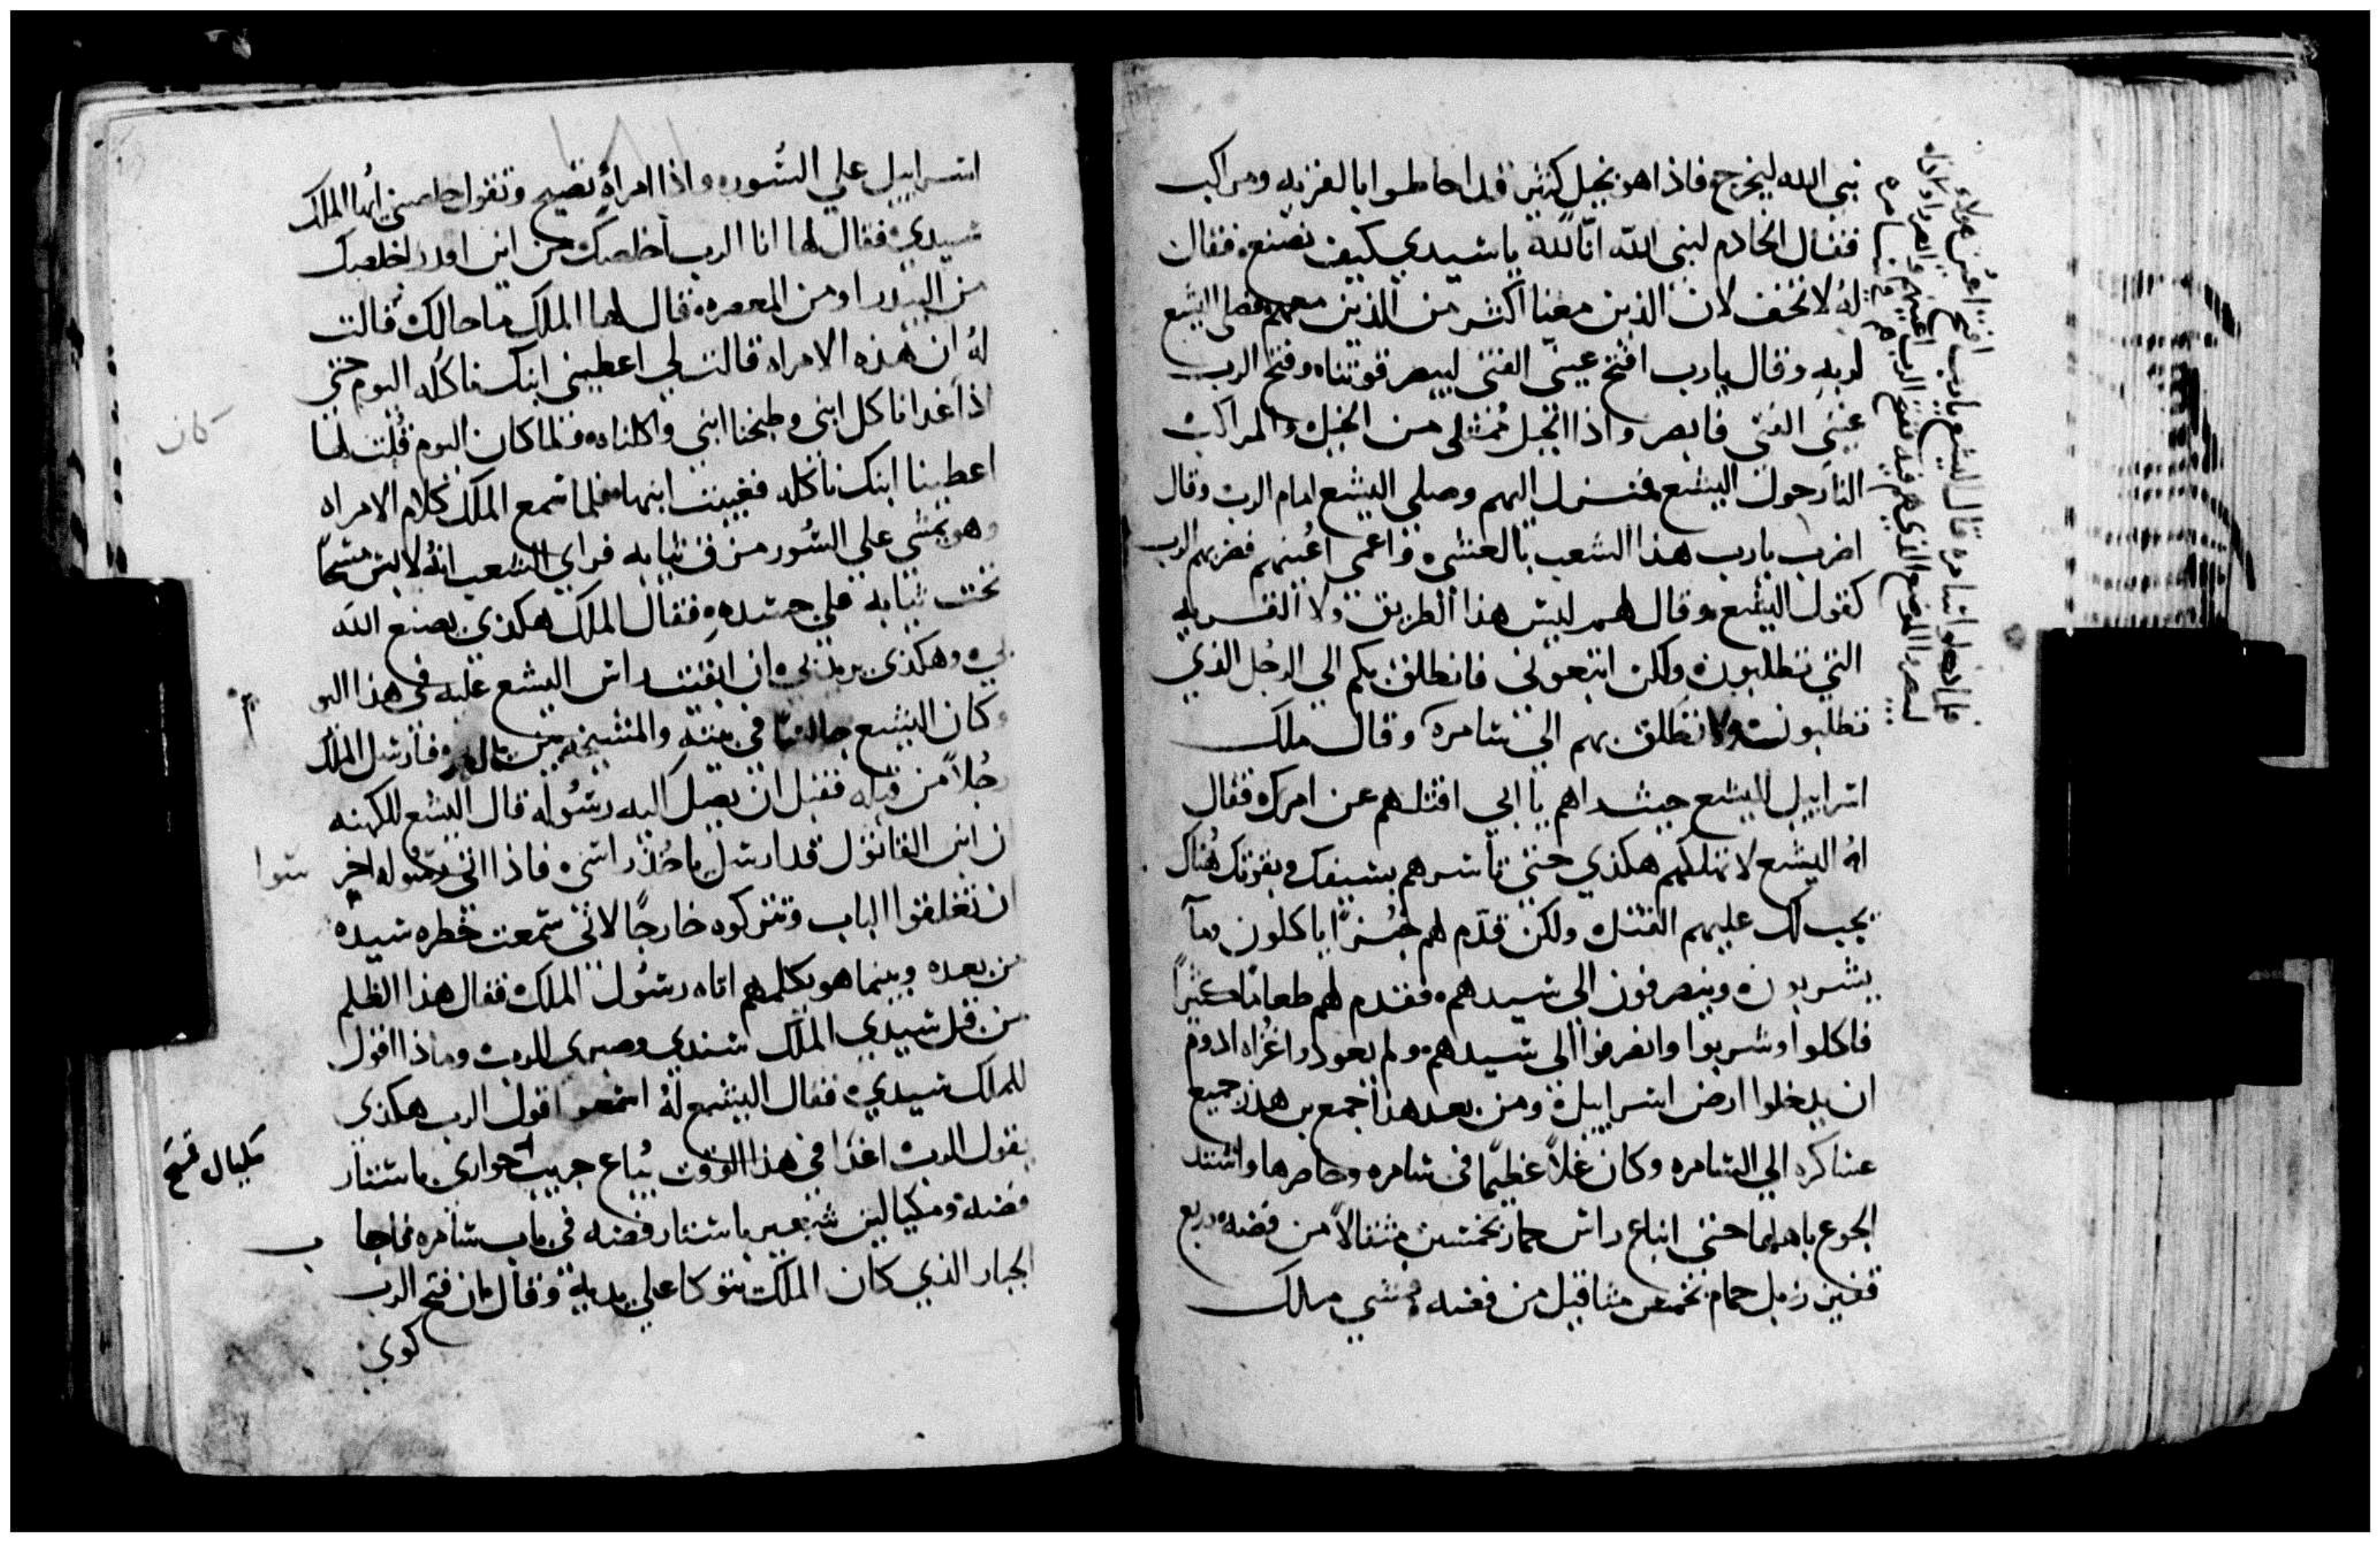 نبي الله ليخرج فاذا هو بخيل كثير قد احاطوا بالقريه ومراكب
فقال الخادم لنبي الله انّا لله يا سيدي كيف نصنع فقال
لهُ لا تخف لان الذين معنا اكثر من الذين معهم فصلى اليشع
لربه وقال يا رب افتح عينى الفتى ليبصر قوتناه وفتح الرب
عيني الفتى فابصر واذا الجبل مُمتلى من الخيل والمراكب
النار حول اليشع فنزل اليهم وصلي اليشع امام الرب وقال
اضرب يا رب هذا الشعب بالعشى واعمي اعُينهم فضربهم الرب
كقول اليشع وقال لهم ليس هذا الطريق ولا القريه
التي تطلبون ولكن اتبعوني فانطلق بكم الي الرجل الذي
تطلبون وانطلق بهم الي سامره وقال ملك
اسراييل لليشع حيث راهم يا ابي اقتلهم عن امرك فقال
لهُ اليشع لا تهلكهم هكذي حتى تاسرهم بسيفك وبقوتك هُناك
يجب لك عليهم القتل ولكن قدّم لهم خُبزًا ياكلون ومآ
يشربون وينصرفون الى سيدهم فقدم لهم طعامًا كثيرًا
فاكلوا وشربوا وانصرفوا الى سيدهم ولم يعودوا غُزاه ادوم
ان يدخلوا ارض اسراييل ومن بعد هذا جمع بن هذر جميع
عساكره الي السامره وكان غلاً عظيمًا فى سامره وحاصرها واشتد
الجوع باهلها حتى ابتاع راس حمار بخمسين مثقالاً من فضه وربع
قفيز زبل حمام بخمس مثاقيل من فضه ومشي ملك
فلما دخلوا سامره قال اليشع يا رب افتح اعُين هولاء
اسراييل علي السُور واذا امراة تصيح وتقول خلصني ايها الملك
سيدي فقال لها انا الرب اخلصك من اين اقدر اخلصك
من البيدر او من المعصره قال لها الملك ما حالك قالت
لهُ ان هذه الامراه قالت لي اعطيني ابنك ناكله اليوم حتى
اذا غدا ناكل ابني وطبخنا ابني واكلناه فلما كان اليوم قُلت لها
كان
اعطينا ابنك ناكله فغيبت ابنها فلما سمع الملك كلام الامراه
وهو يمشي علي السُور مزق ثيابه فراي الشعب انهُ لابس مسحًا
تحت ثيابه علي جسده فقال الملك هكذي يصنع الله
بي وهكذي يزيدني ان ابقيت راس اليشع عليه في هذا اليو
م
وكان اليشع جالسًا في بيته والمشيخه بين يديه فارسل الملك
رجُلاً من قبله فقبل ان يصل اليه رسُوله قال اليشع للكهنه
ان ابن القاتول قد ارسل ياخُذ راسى فاذا اتى رسُوله اخر
ستوا
ان تغلقوا الباب وتتركوه خارجًا لانى سمعت خطره سيده
من بعده وبينما هو يكلمهم اتاه رسُول الملك فقال هذا الظلم
من قبل سيدي الملك سندي وصبري للرب وماذا اقول
للملك سيدي فقال اليشع لهُ اسمعوا قول الرب هكذي
يقول الرب اغدًا في هذا الوقت يُباع جريب حواري باستار
مكيال قمح
فضه ومكيالين شعير باستار فضه في باب سامره فاجا
ب
الجبار الذي كان الملك يتوكا علي يديه وقال ان فتح الرب
كوي